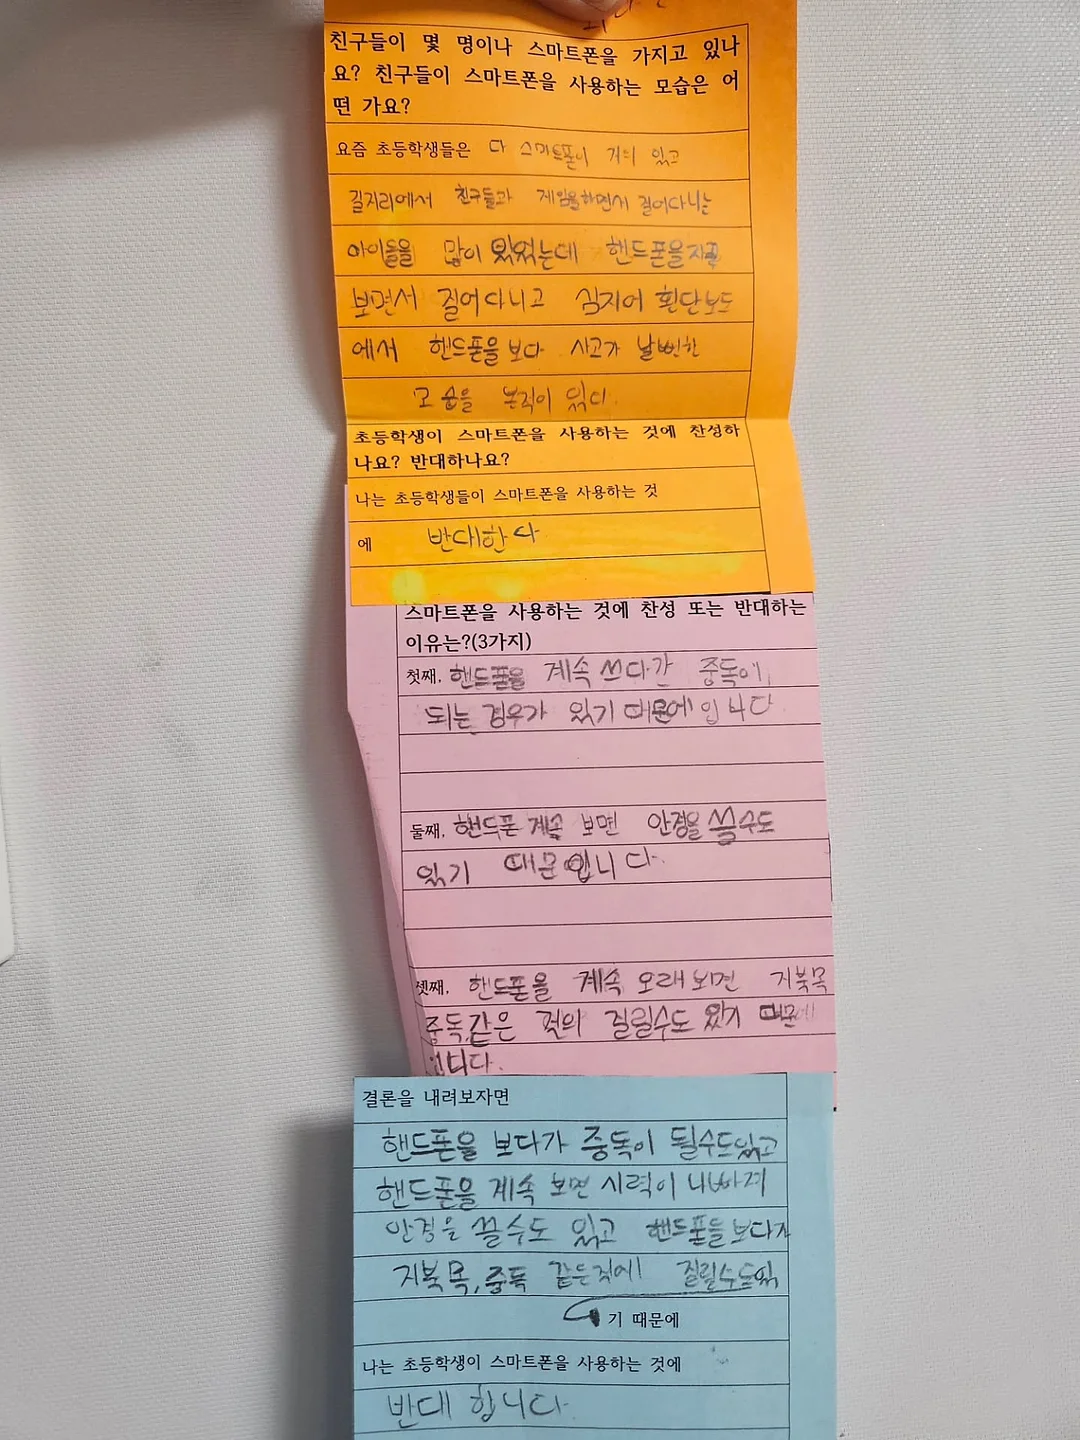 친구들이 몇 명이나 스마트폰을 가지고 있나
요? 친구들이 스마트폰을 사용하는 모습은 어
떤 가요?
요즘 초등학생들은 다 스마트폰이 거의 있고
길자리에서 친구들과 게임을하면서 걸어다니는
아이들을 많이 있었는데 핸드폰을
보면서 걸어다니고 심지어 횡단보도
에서 핸드폰을 보다 사고가 날뻔한
모습을 본적이 있다.
초등학생이 스마트폰을 사용하는 것에 찬성하
나요? 반대하나요?
나는 초등학생들이 스마트폰을 사용하는 것
에 반대한다
스마트폰을 사용하는 것에 찬성 또는 반대하는
이유는?(3가지)
첫째, 핸드폰을 계속 쓰다가 중독이
되는 경우가 있기 때문에입니다
둘째, 핸드폰 계속 보면 안경을 쓸수도
있기 때문입니다.
셋째, 핸드폰을 계속 오래보면 거북목
중독,같은 걱의 질릴수도 있기 때문에
입니다.
결론을 내려보자면
핸드폰을 보다가 중독이 될수도있고
핸드폰을 계속 보면 시력이 나빠져
안경을 쓸수도 있고 핸드폰을보다가
거북목,중독 같은것에 질릴수도있
기 때문에
나는 초등학생이 스마트폰을 사용하는 것에
반대 합니다.